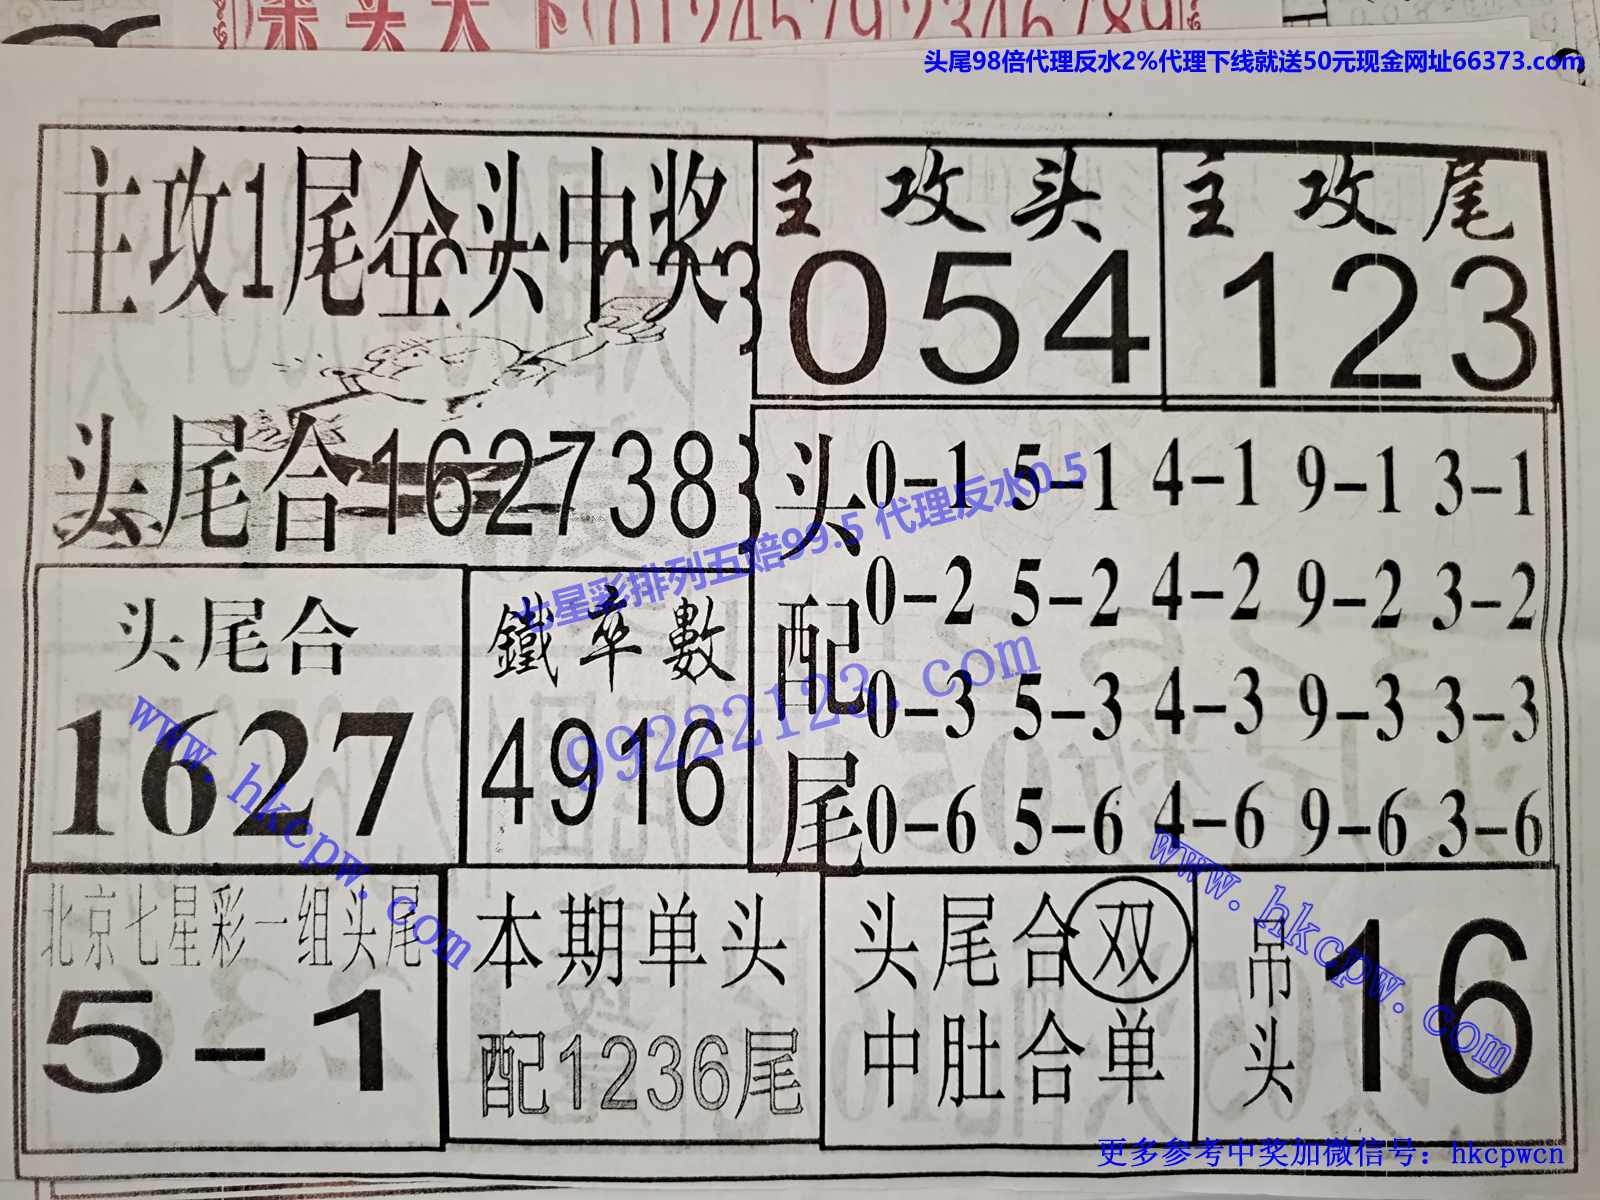 头尾98倍代理反水2%代理下线就送50元现金网址66373.com
主攻1尾全头中奖
主攻头
054
主攻尾
123
头尾合162738
头配尾
0-1 5-1 4-1 9-1 3-1
0-2 5-2 4-2 9-2 3-2
0-3 5-3 4-3 9-3 3-3
0-6 5-6 4-6 9-6 3-6
七星彩排列五赔99.5 代理反水0.5
99222123.com
头尾合
1627
鐵卒數
4916
www.hkcpw.com
北京七星彩一组头尾
5-1
本期单头
配1236尾
头尾合双
中肚合单
吊头16
www.hkcpw.com
更多参考中奖加微信号：hkcpwcn